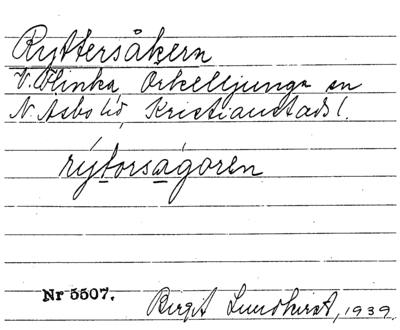 Ryttersåkern
V. Flinka, Örkelljunga sn
N. Åsbo hd, Kristianstads l.
rýtorságoren
Nr 5507.
Birgit Lundkvist, 1939.